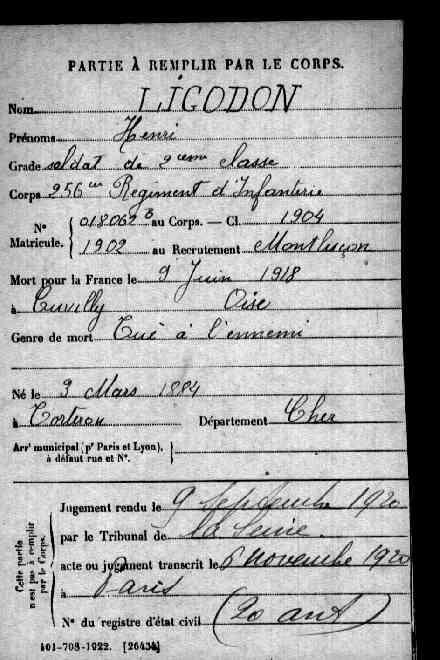 PARTIE À REMPLIR PAR LE CORPS.
Nom LIGODON
Prénoms Henri
Grade soldat de 2eme classe
Corps 256eme Régiment d'Infanterie
N° Matricule. { 018062 B au Corps. — Cl. 1904
1902 au Recrutement Montluçon
Mort pour la France le 9 Juin 1918
à Cuvilly Oise
Genre de mort Tué à l'ennemi
Né le 3 Mars 1884
à Torteron Département Cher
Arrt municipal (pr Paris et Lyon), à défaut rue et N°.
Cette partie n'est pas à remplir par le Corps.
Jugement rendu le 9 Septembre 1920
par le Tribunal de la Seine
acte ou jugement transcrit le 6 novembre 1920
à Paris
N° du registre d'état civil (20 arrt)
101-708-1922. [26434]